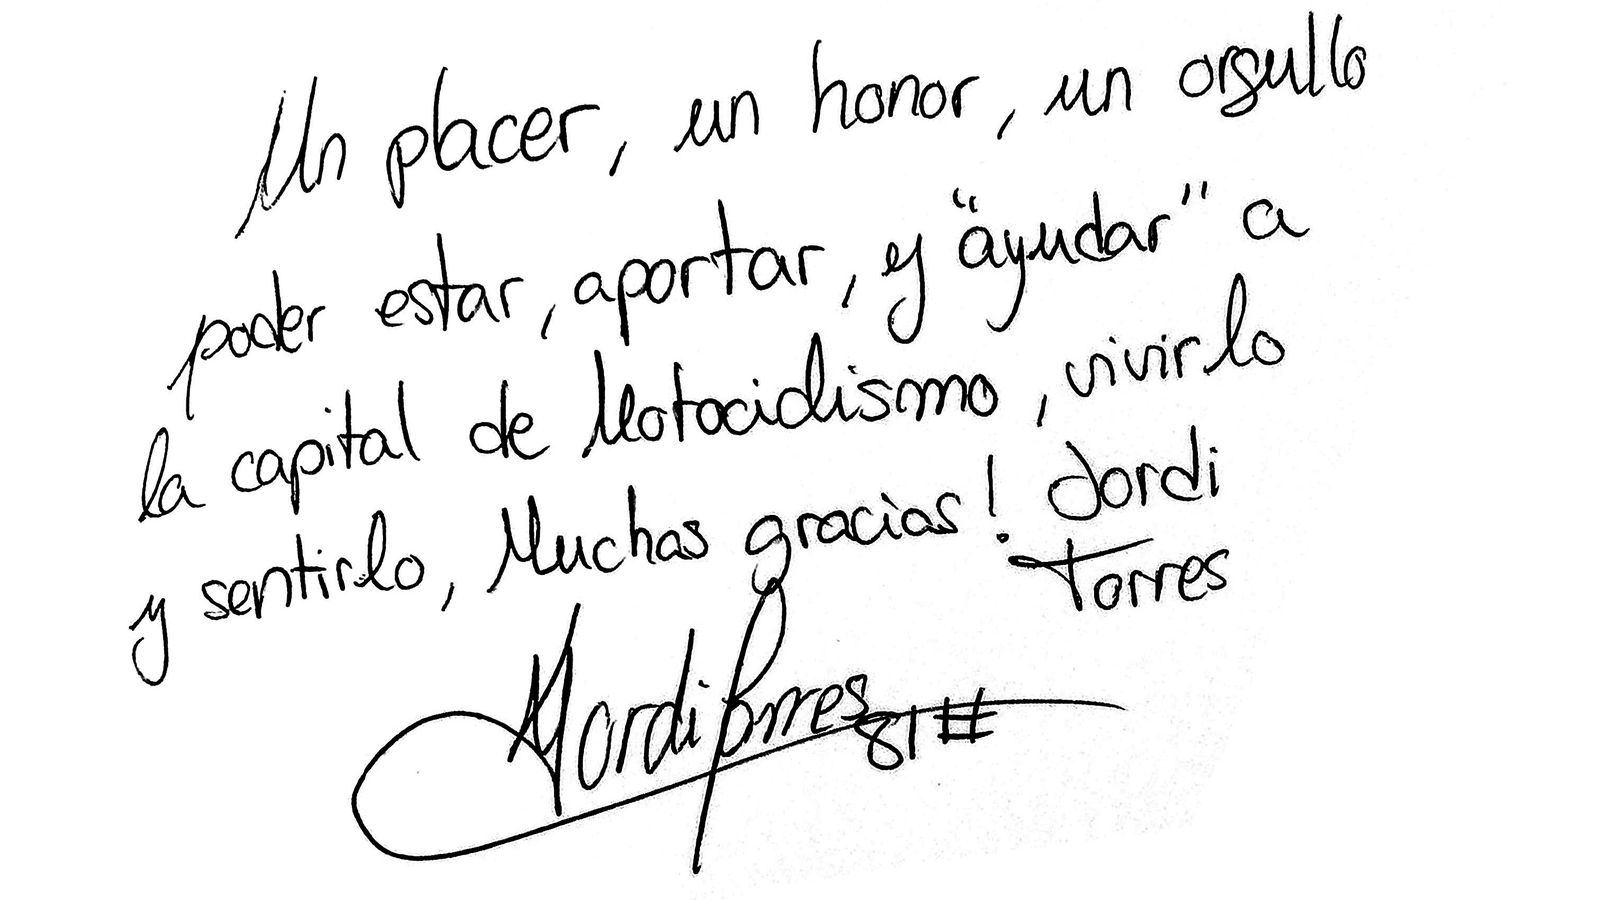 Un placer, un honor, un orgullo
poder estar, aportar, y "ayudar" a
la capital de Motociclismo, vivirlo
y sentirlo, Muchas gracias! Jordi
Torres
Jordi Torres 81#